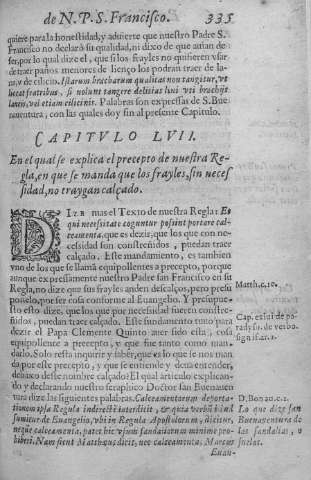 de N. P. S. Francisco. 335
quiere para la honestidad, y aduierte que nuestro Padre S.
Francisco no declarò su qualidad, ni dixo de que auian de
ser, por lo qual dize el, que si los frayles no quisieren vsar
de traer paños menores de lienço los podran traer de la-
na, y de cilicio. Istarum bracharum qualitas non tangitur, vt
liceat fratribus, si volunt tangere delitias luni vti brachijs
laneis, vel etiam cilicinis. Palabras son expressas de S. Bue
nauentura, con las quales doy fin al presente Capitulo.
CAPITVLO LVII.
En el qual se explica el precepto de nuestra Re-
gla, en que se manda que los frayles, sin neces
sidad, no traygan calçado.
DIZE mas el Texto de nuestra Regla: Et
qui necessitate coguntur possint portare cal-
ceamenta. que es dezir, que los que con ne-
cessidad son constreñidos, puedan traer
calçado. Este mandamiento, es tambien
vno de los que se llamã equipollentes a precepto, porque
aunque expressamente nuestro Padre san Francisco en su
Regla, no dize que sus frayles anden descalços, pero presu
ponelo, por ser cosa conforme al Euangelio. Y presupue-
sto esto dize, que los que por necessidad fueren constre-
ñidos, puedan traer calçado. Este fundamento tuuo para
dezir el Papa Clemente Quinto auer sido esta, cosa
equipollente a precepto, y que fue tanto como man-
darlo. Solo resta inquirir y saber, que es lo que se nos man
da por este precepto, y que se entiende y deua entender,
debaxo deste nombre calçado? El qual articulo explican-
do y declarando nuestro seraphico Doctor san Buenauen
tura dize las siguientes palabras. Calceamentorum deporta-
tionem ipsa Regula indirectè interdicit, & quia verbũ
sumitur de Euangelio, vbi in Regula Apostolorum, dicitur,
neque calceamenta, patet hic vsum sandaliorum minimè pro-
hiberi. Nam sicut Matthæus dicit, nec calceamenta, Marcus
Euan-
Matth. c. 10.
Cap. exiui de pa-
radyso. de verbo.
sign. if. ar. 1.
D. Bon. ao. c. 2.
Lo que dize san
Buenauentura de
las sandalias, o
suelas.